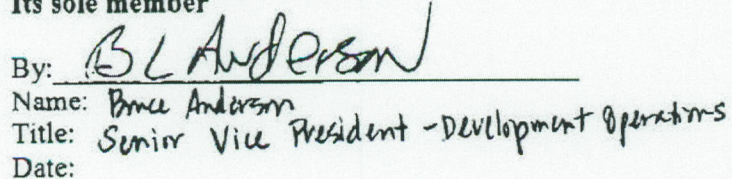 Its sole member
By: B L Anderson
Name: Bruce Anderson
Title: Senior Vice President - Development Operations
Date: